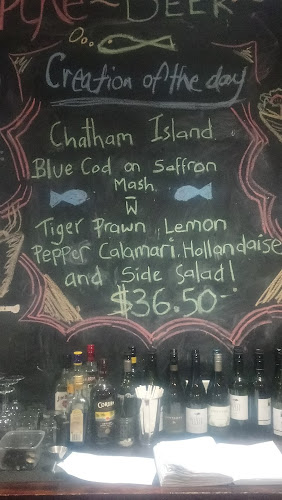 BEER
Creation of the day
Chatham Island
Blue Cod on Saffron
Mash
W̅
Tiger Prawn, Lemon
Pepper Calamari, Hollandaise
and Side Salad!
$36.50-